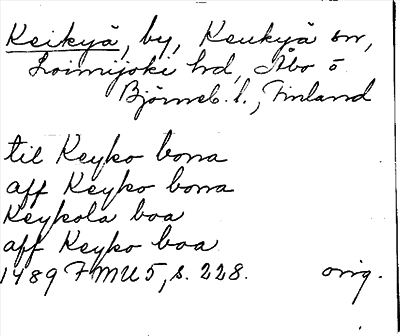 Keikyä, by, Keukyä sn,
Loimijoki hd, Åbo o
Björneb. l., Finland
til Keyko bona
aff Keyko bona
Keykola boa
aff Keyko boa
1489 FMU 5, s. 228. orig.